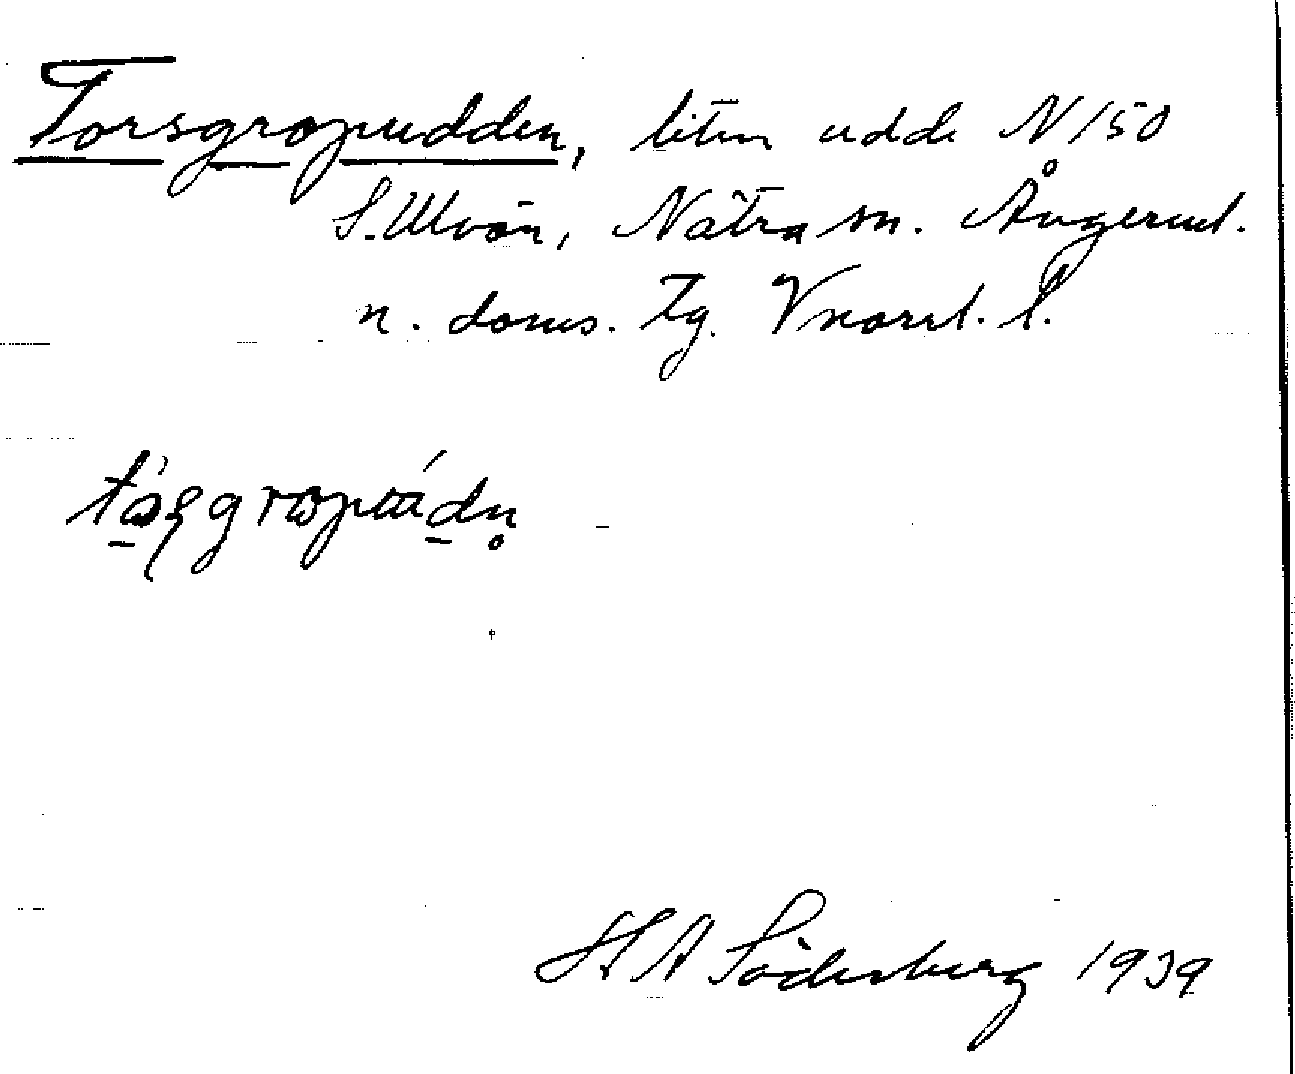 Torsgropudden, liten udde N 150
S. Ulvön, Nätra sn. Ångerml.
n. doms. tg. Vnorrl. l.
H A Söderberg 1939